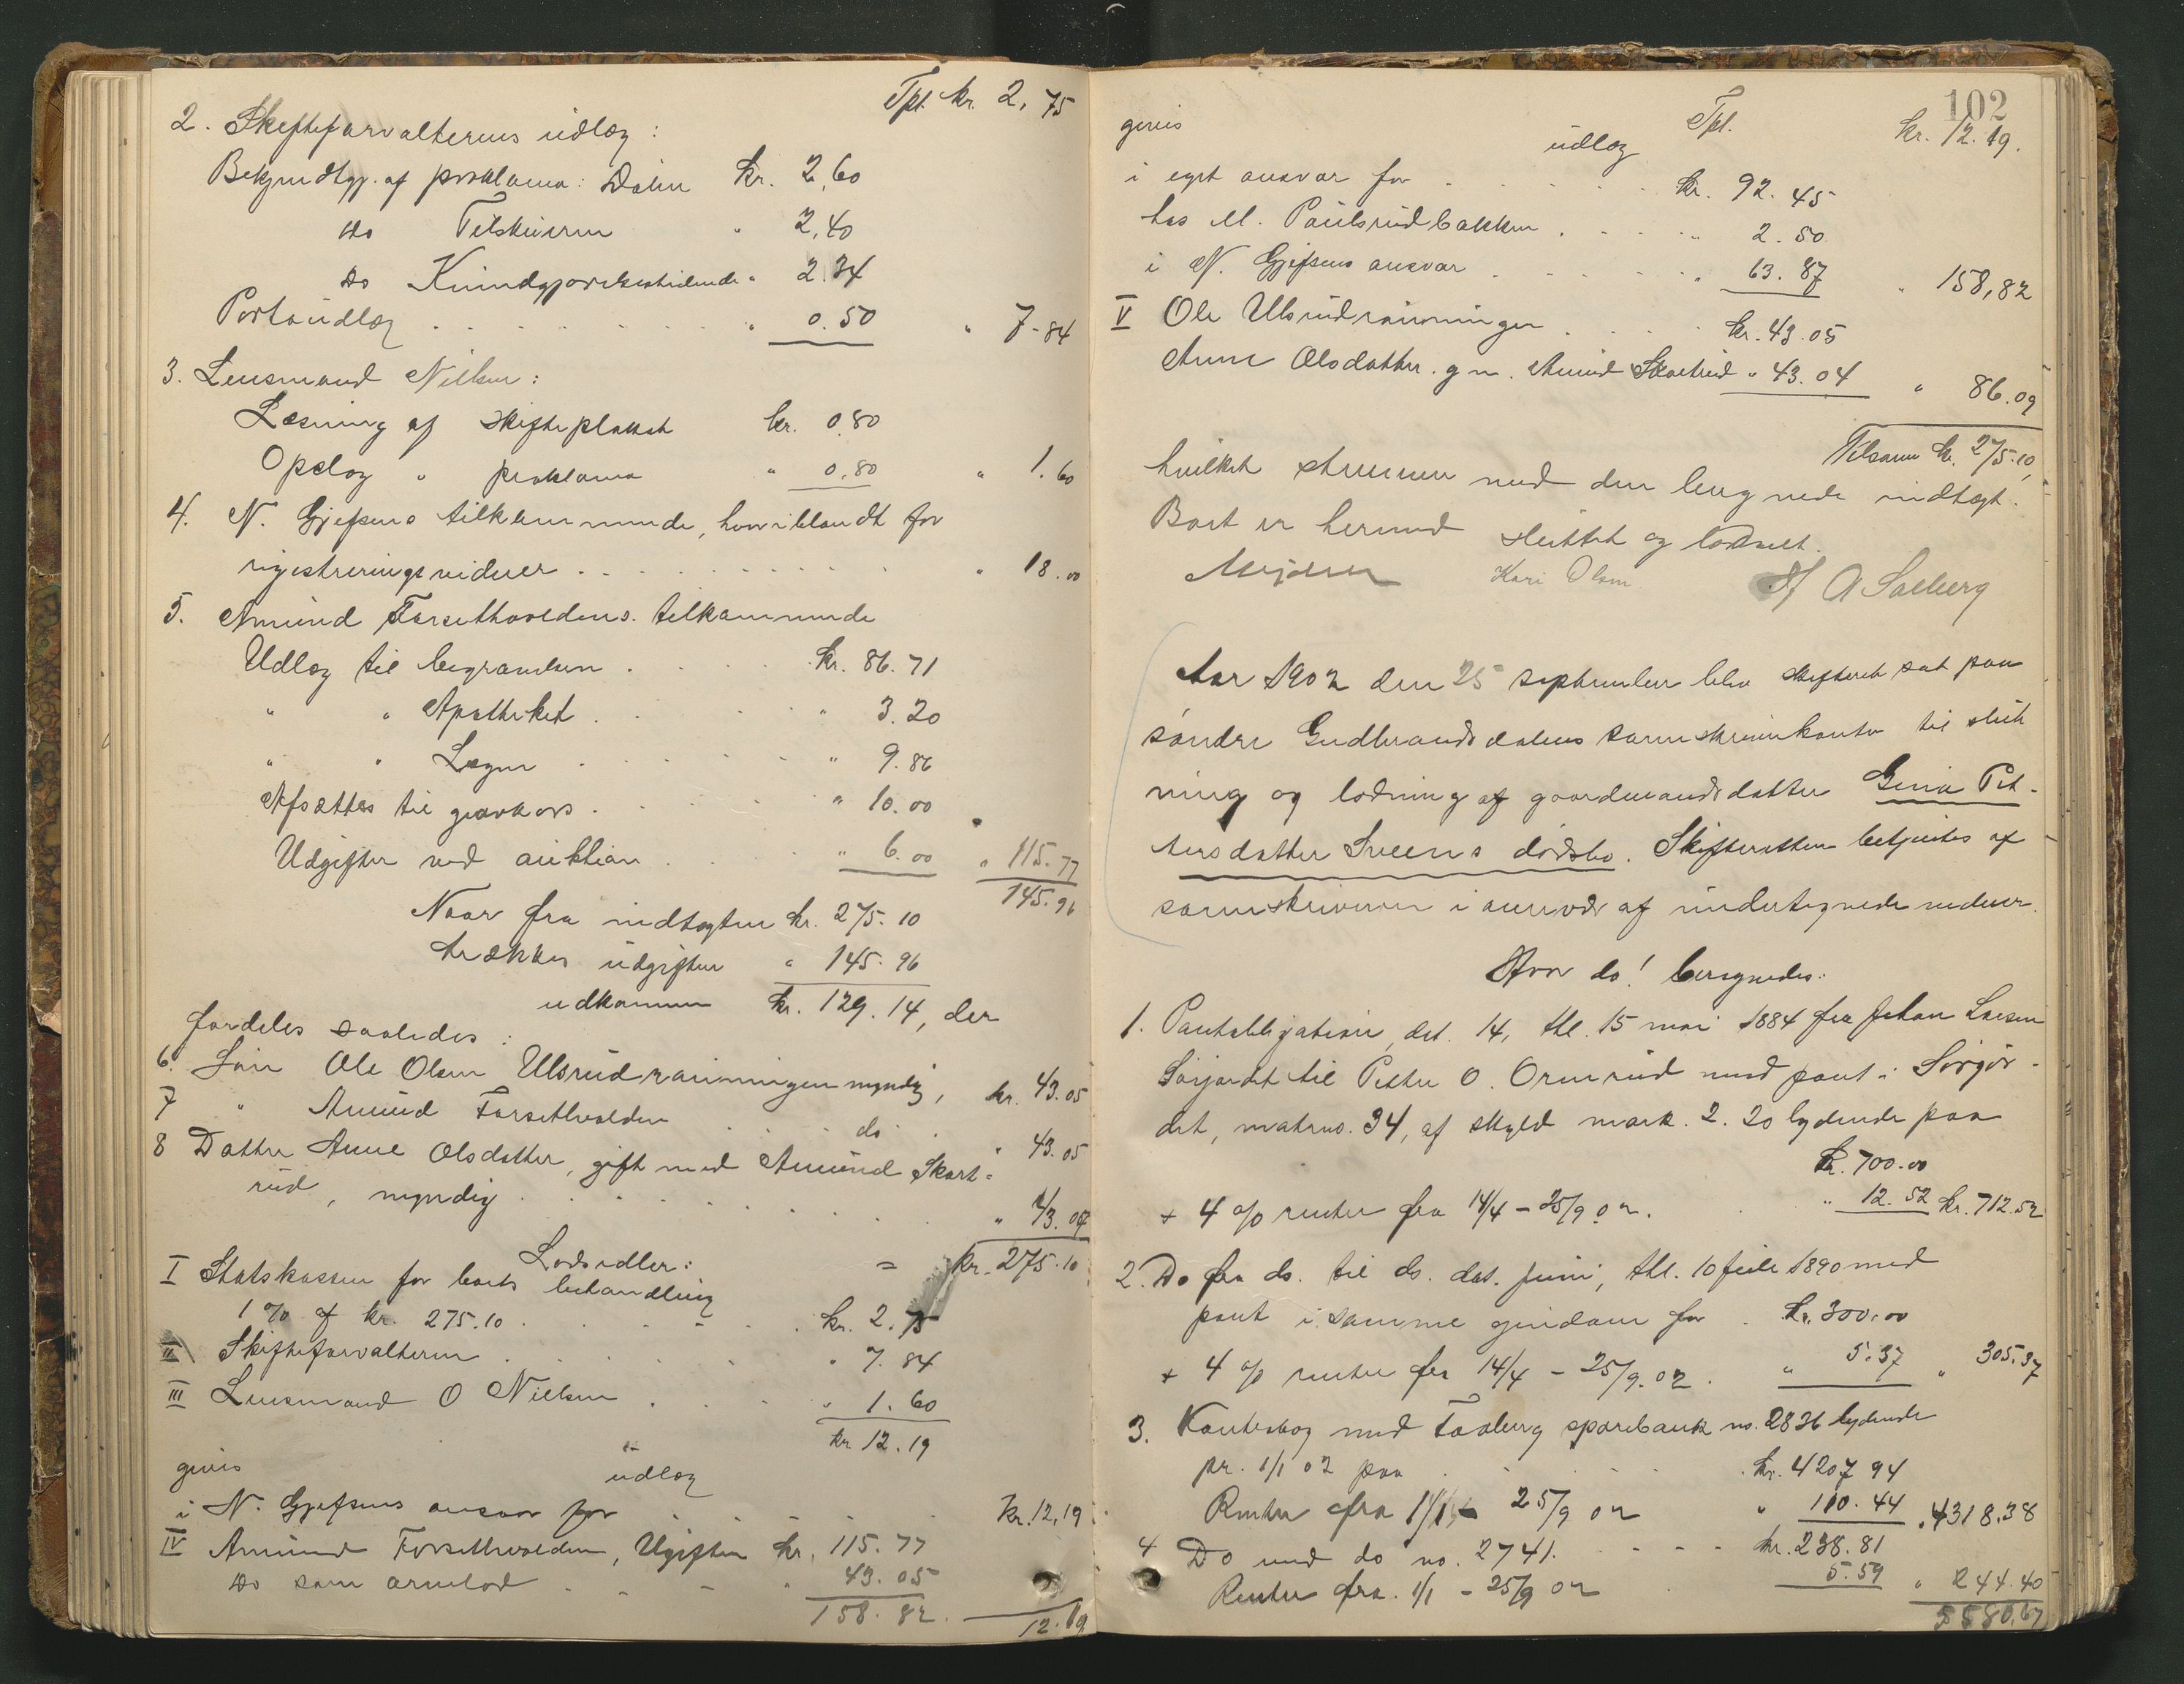 Tpt. kr. 2,75
2. Skifteforvalterens udlæg:
Bekjendtgj. af proklama: Dalen kr. 2,60
do Tilskueren " 2,40
do Kundgjørelsestidende " 2.34
Portoudlæg " 0.50 " 7-84
3. Lensmand Nilsen:
Læsning af skifteplakat kr. 0.80
Opslag " proklama " 0.80 " 1.60
4. N. Gjefsens tilkommende, hvoriblandt for
registreringsvidner " 18.00
5. Amund Forsethvoldens tilkommende
Udlæg til begravelsen kr. 86.71
" " Apotheket " 3.20
" " Lægen " 9.86
Afsættes til gravkors " 10.00
Udgifter ved auktion " 6.00 " 115.77
145.96
Naar fra indtægten kr. 275.10
trækkes udgifter " 145.96
udkommer kr. 129.14, der
fordeles saaledes:
6. Søn Ole Olsen Ulsrudrønningen myndig, kr. 43.05
7 " Amund Forsethvolden do " 43.05
8 Datter Anne Olsdatter, gift med Amund Skart-
rud, myndig " 43.04
= kr. 275.10
Lodsedler:
I Statskassen for boets behandling
1 % af kr. 275.10 kr. 2.75
II Skifteforvalteren " 7.84
III Lensmand O Nilsen " 1.60
kr. 12.19
gives udlæg
i N. Gjefsens ansvar for kr. 12,19
IV Amund Forsethvolden, Ugifter kr. 115.77
do som arvelod " 43.05
158.82
12.19
102
Tpt. kr. 12.19.
gives udlæg
i eget ansvar for kr. 92.45
hos M. Paulsrudbakken " 2.50
i N. Gjefsens ansvar " 63.87 " 158,82
V Ole Ulsrudrønningen kr. 43.05
Anne Olsdatter g. m. Amund Skartrud " 43.04 " 86.09
Tilsam kr. 275.10,
hvilket stemmer med den beregnede indtægt.
Boet er hermed sluttet og loddet.
Kari Olsen A Solberg
Aar 1902 den 25 september blev skifteret sat paa
søndre Gudbrandsdalens sorenskriverkontor til slut
ning og lodning af gaardmandsdatter Gina Pet-
tersdatter Sveens dødsbo. Skifteretten betjentes af
sorenskriveren i nærvær af undertegnede vidner.
Hvor do! beregnedes:
1. Pantobligation, dat. 14, thl. 15 mai 1884 fra Johan Larsen
Sørjordet til Petter O. Ormrud med pant i Sørjor-
det, matrno. 34, af skyld mark. 2.20 lydende paa
kr. 700.00
+ 4 % renter fra 14/4 - 25/9 02. " 12.52 kr. 712.52
2. Do fra do. til do. dat. juni, thl. 10 juli 1890 med
pant i samme eiendom for kr. 300.00
+ 4 % renter fra 14/4 - 25/9. 02. " 5.37 " 305.37
3. Kontrabog med Faaberg sparebank no. 2836 lydende
pr. 1/1 02 paa kr. 4207 94
Renter fra 1/1 - 25/9 02 " 110.44 " 4318.38
4 Do med do no. 2741. kr. 238.81
Renter fra 1/1 - 25/9 02 5.59 " 244.40
5580.67